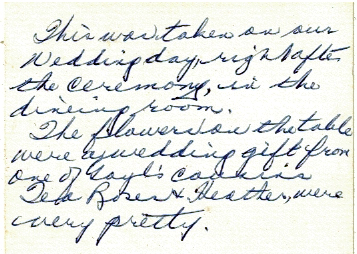 This was taken on our
Wedding day, right after
the ceremony, in the
dineing room.
The flowers on the table
were a wedding gift from
one of Gayl's cousins
Tea Roses & Heather, were
very pretty.